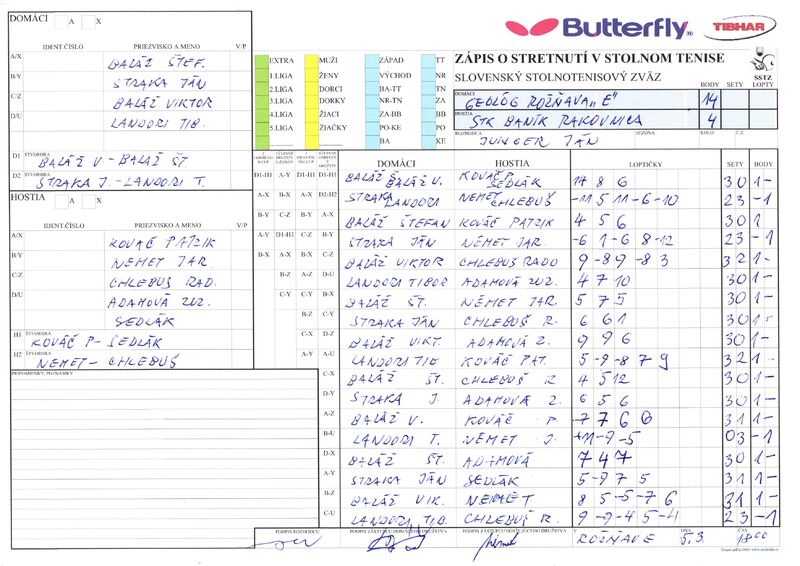 DOMÁCI A X
IDENT.ČÍSLO PRIEZVISKO A MENO V/P
A/X BALÁŽ ŠTEF.
B/Y STRAKA JÁN
C/Z BALÁŽ VIKTOR
D/U LANDORI TIB.
D1 ŠTVORHRA
BALÁŽ V. - BALÁŽ ŠT.
D2 ŠTVORHRA
STRAKA J. - LANDORI T.
HOSTIA A X
IDENT.ČÍSLO PRIEZVISKO A MENO V/P
A/X KOVÁČ PATRIK
B/Y NÉMET JAR.
C/Z CHLEBUŠ RAD.
D/U ADAMOVÁ ZUZ.
SEDLÁK
H1 ŠTVORHRA
KOVÁČ P - SEDLÁK
H2 ŠTVORHRA
NEMET - CHLEBUŠ
PRIPOMIENKY, POZNÁMKY
Butterfly TIBHAR
EXTRA MUŽI ZÁPAD TT
1.LIGA ŽENY VÝCHOD NR
2.LIGA DORCI BA-TT TN
3.LIGA DORKY NR-TN ZA
4.LIGA ŽIACI ZA-BB BB
5.LIGA ŽIAČKY PO-KE PO
BA KE
ZÁPIS O STRETNUTÍ V STOLNOM TENISE
SLOVENSKÝ STOLNOTENISOVÝ ZVÄZ SSTZ
BODY SETY LOPTY
DOMÁCI
GEOLÓG ROŽŇAVA „E" 14
HOSTIA
STK BANÍK RAKOVNICA 4
ROZHODCA SEZÓNA KOLO Č.Z.
JUNGER JÁN
DOMÁCI HOSTIA LOPTIČKY SETY BODY
D1-H1 A-Y D1-H1 D1-H1 BALÁŽ Š. BALÁŽ V. KOVÁČ P SEDLÁK 14 8 6 3 0 1 -
A-X B-X A-X D2-H2 STRAKA LANDORI NEMET CHLEBUŠ -11 5 11 -6 -10 2 3 - 1
B-Y C-Z B-Y A-X BALÁŽ ŠTEFAN KOVÁČ PATRIK 4 5 6 3 0 1
A-Y D1-H1 C-Z B-Y STRAKA JÁN NÉMET JAR. -6 1 -6 8 -12 2 3 - 1
B-X A-X B-X C-Z BALÁŽ VIKTOR CHLEBUŠ RADO 9 -8 9 -8 3 3 2 1 -
B-Z A-Z D-U LANDORI TIBOR ADAMOVÁ ZUZ. 4 7 10 3 0 1 -
C-Y C-Y A-Y BALÁŽ ŠT. NÉMET JAR. 5 7 5 3 0 1 -
B-Z B-Z STRAKA JÁN CHLEBUŠ R. 6 6 1 3 0 1 -
C-X C-U BALÁŽ VIKT. ADAMOVÁ Z. 9 9 6 3 0 1 -
A-Y D-X LANDORI TIB KOVÁČ PAT. 5 -9 -8 7 9 3 2 1 -
A-Z BALÁŽ ŠT. CHLEBUŠ R 4 5 12 3 0 1 -
B-U STRAKA J. ADAMOVÁ Z. 6 5 6 3 0 1 -
C-X BALÁŽ V. KOVÁČ P -7 7 6 6 3 1 1 -
D-Y LANDORI T. NÉMET J. -11 -9 -5 0 3 - 1
A-U BALÁŽ ŠT. ADAMOVÁ 7 4 7 3 0 1 -
STRAKA JÁN SEDLÁK 5 -9 7 5 3 1 1 -
BALÁŽ VIK. NEMET 8 5 -5 -7 6 3 1 1 -
LANDORI TIB. CHLEBUŠ R. 9 -9 -4 5 -4 2 3 - 1
PODPIS ROZHODCU PODPIS ZÁSTUPCU DOMÁCEHO DRUŽSTVA PODPIS ZÁSTUPCU HOSŤUJÚCEHO DRUŽSTVA DŇA ČAS
ROŽŇAVE 5.3. 18 00